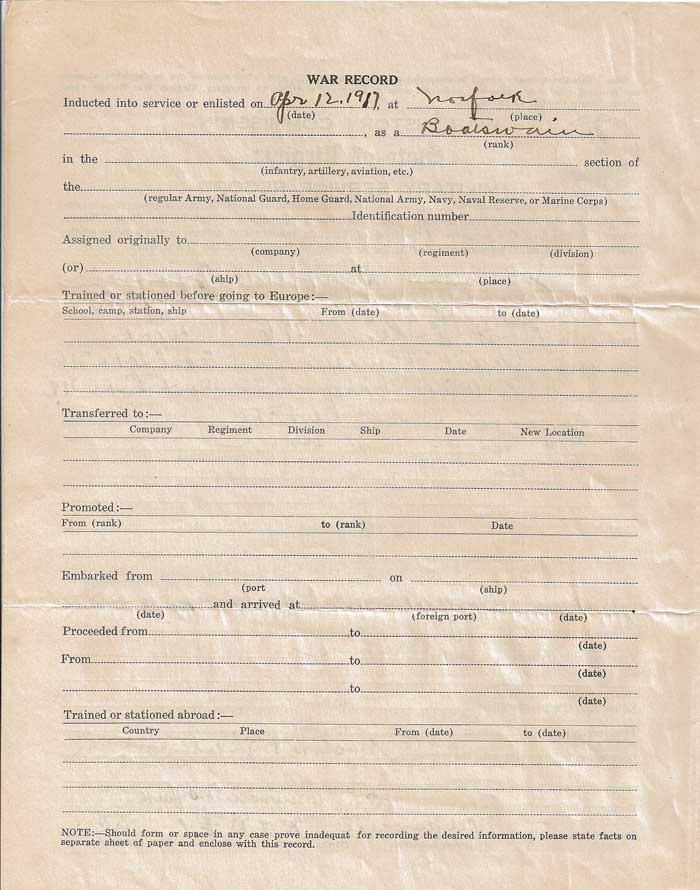 WAR RECORD
Inducted into service or enlisted on Apr 12, 1917, at Norfolk
(date) (place)
, as a Boatswain
(rank)
in the section of
(infantry, artillery, aviation, etc.)
the
(regular Army, National Guard, Home Guard, National Army, Navy, Naval Reserve, or Marine Corps)
Identification number
Assigned originally to
(company) (regiment) (division)
(or) at
(ship) (place)
Trained or stationed before going to Europe:—
School, camp, station, ship From (date) to (date)
Transferred to:—
Company Regiment Division Ship Date New Location
Promoted:—
From (rank) to (rank) Date
Embarked from on
(port (ship)
and arrived at
(date) (foreign port) (date)
Proceeded from to
(date)
From to
(date)
to
(date)
Trained or stationed abroad:—
Country Place From (date) to (date)
NOTE:—Should form or space in any case prove inadequat for recording the desired information, please state facts on
separate sheet of paper and enclose with this record.